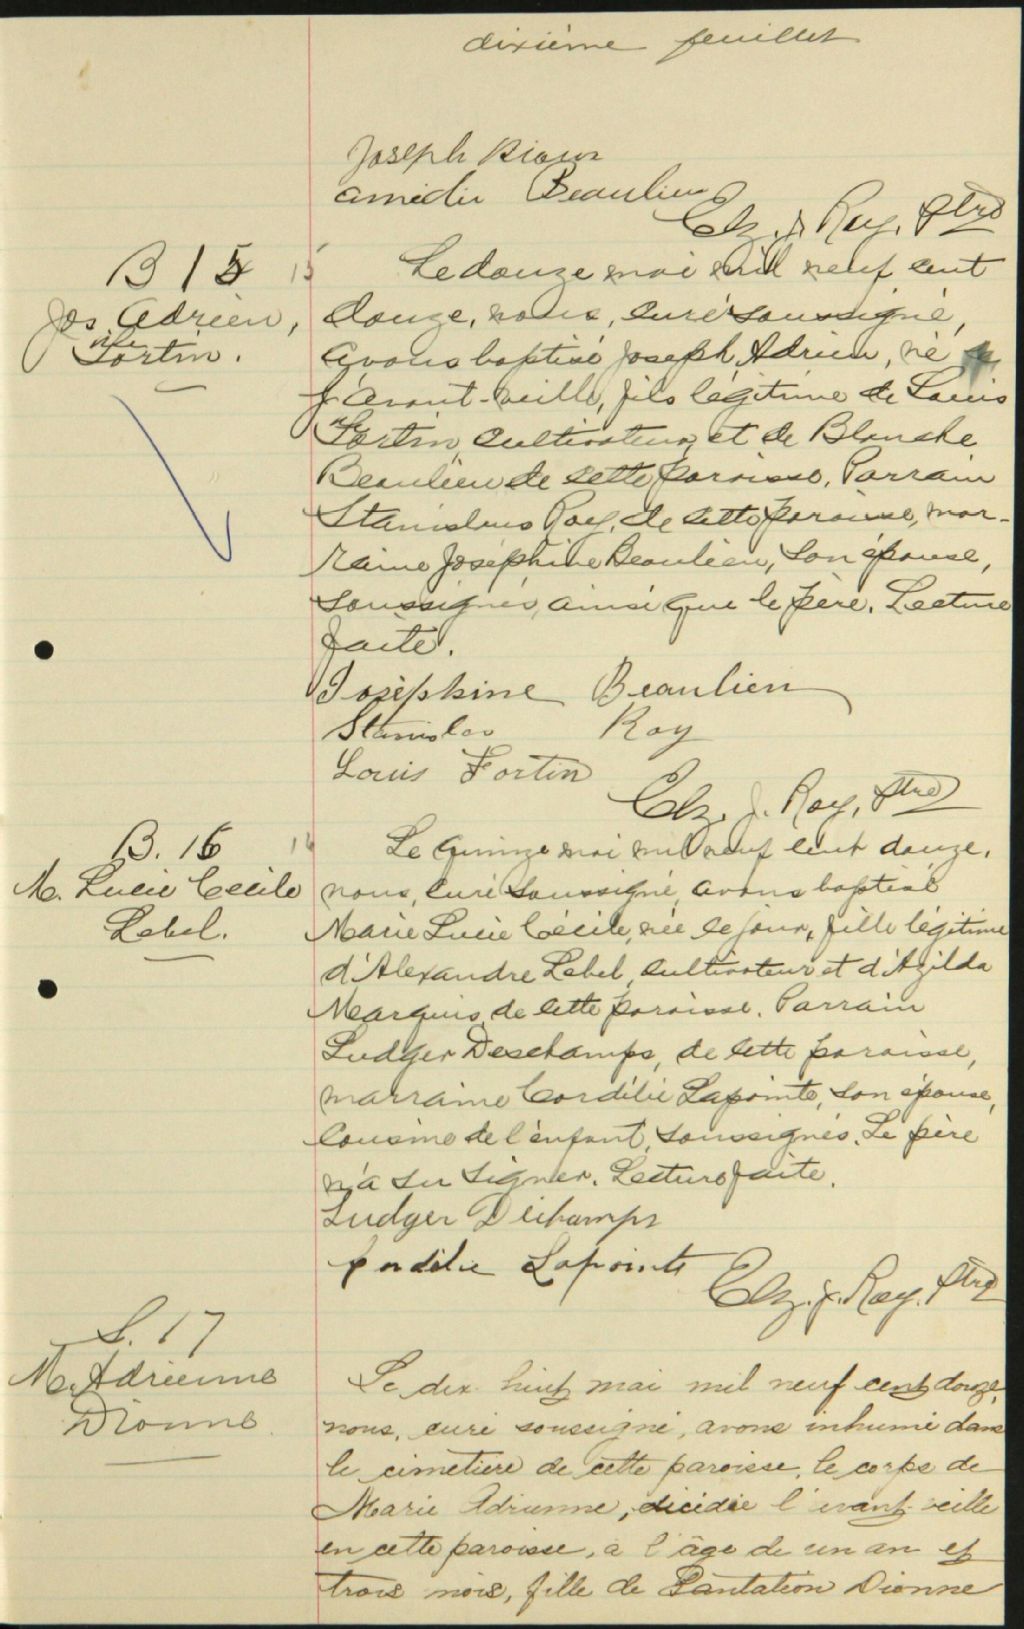 dixième feuillet
Joseph Rioux
amédée Beaulieu
Elz. J. Roy, Ptre
B 15
Jos Adrien,
Fortin.
Le douze mai mil neuf cent
douze, nous, curé soussigné,
avons baptisé Joseph Adrien, né
l'avant-veille, fils légitime de Louis
Fortin, cultivateur, et de Blanche
Beaulieu de cette paroisse. Parrain
Stanislas Roy, de cette paroisse, mar-
raine Joséphine Beaulieu, son épouse,
soussignés, ainsi que le père. Lecture
faite.
Josephine Beaulieu
Stanislas Roy
Louis Fortin
Elz. J. Roy, Ptre
B. 16
M. Lucie Cécile
Lebel.
Le quinze mai mil neuf cent douze,
nous, curé soussigné, avons baptisé
Marie Lucie Cécile, née ce jour, fille légitime
d'Alexandre Lebel, cultivateur et d'Azilda
Marquis, de cette paroisse. Parrain
Ludger Deschamps, de cette paroisse,
marraine Cordélie Lapointe, son épouse,
cousine de l'enfant, soussignés. Le père
n'a su signer. Lecture faite.
Ludger Dechamps
Cordélie Lapointe
Elz. J. Roy, Ptre
S. 17
M. Adrienne
Dionne
Le dix huit mai mil neuf cent douze,
nous, curé soussigné, avons inhumé dans
le cimetière de cette paroisse, le corps de
Marie Adrienne, décédée l'avant-veille
en cette paroisse, à l'âge de un an et
trois mois, fille de Dionne